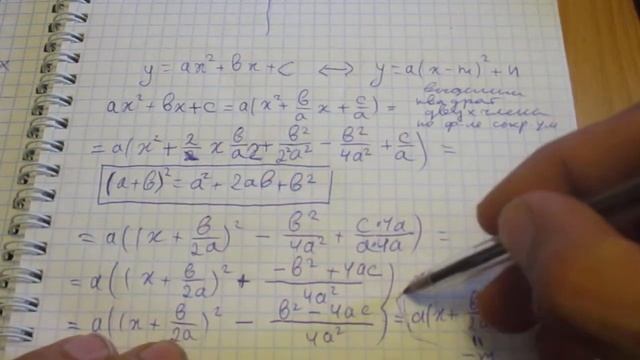 y = ax² + bx + c ⟷ y = a(x - m)² + n
ax² + bx + c = a(x² + b/a x + c/a) =
выделили
квадрат
двух члена
по ф-ле сокр ум
= a(x² + 2/2 x b/a + b²/2²a² - b²/4a² + c/a) =
(a+b)² = a² + 2ab + b²
= a((x + b/2a)² - b²/4a² + c·4a/a·4a) =
= a((x + b/2a)² + -b² + 4ac/4a²)
= a((x + b/2a)² - b² - 4ac/4a²) = a(x +